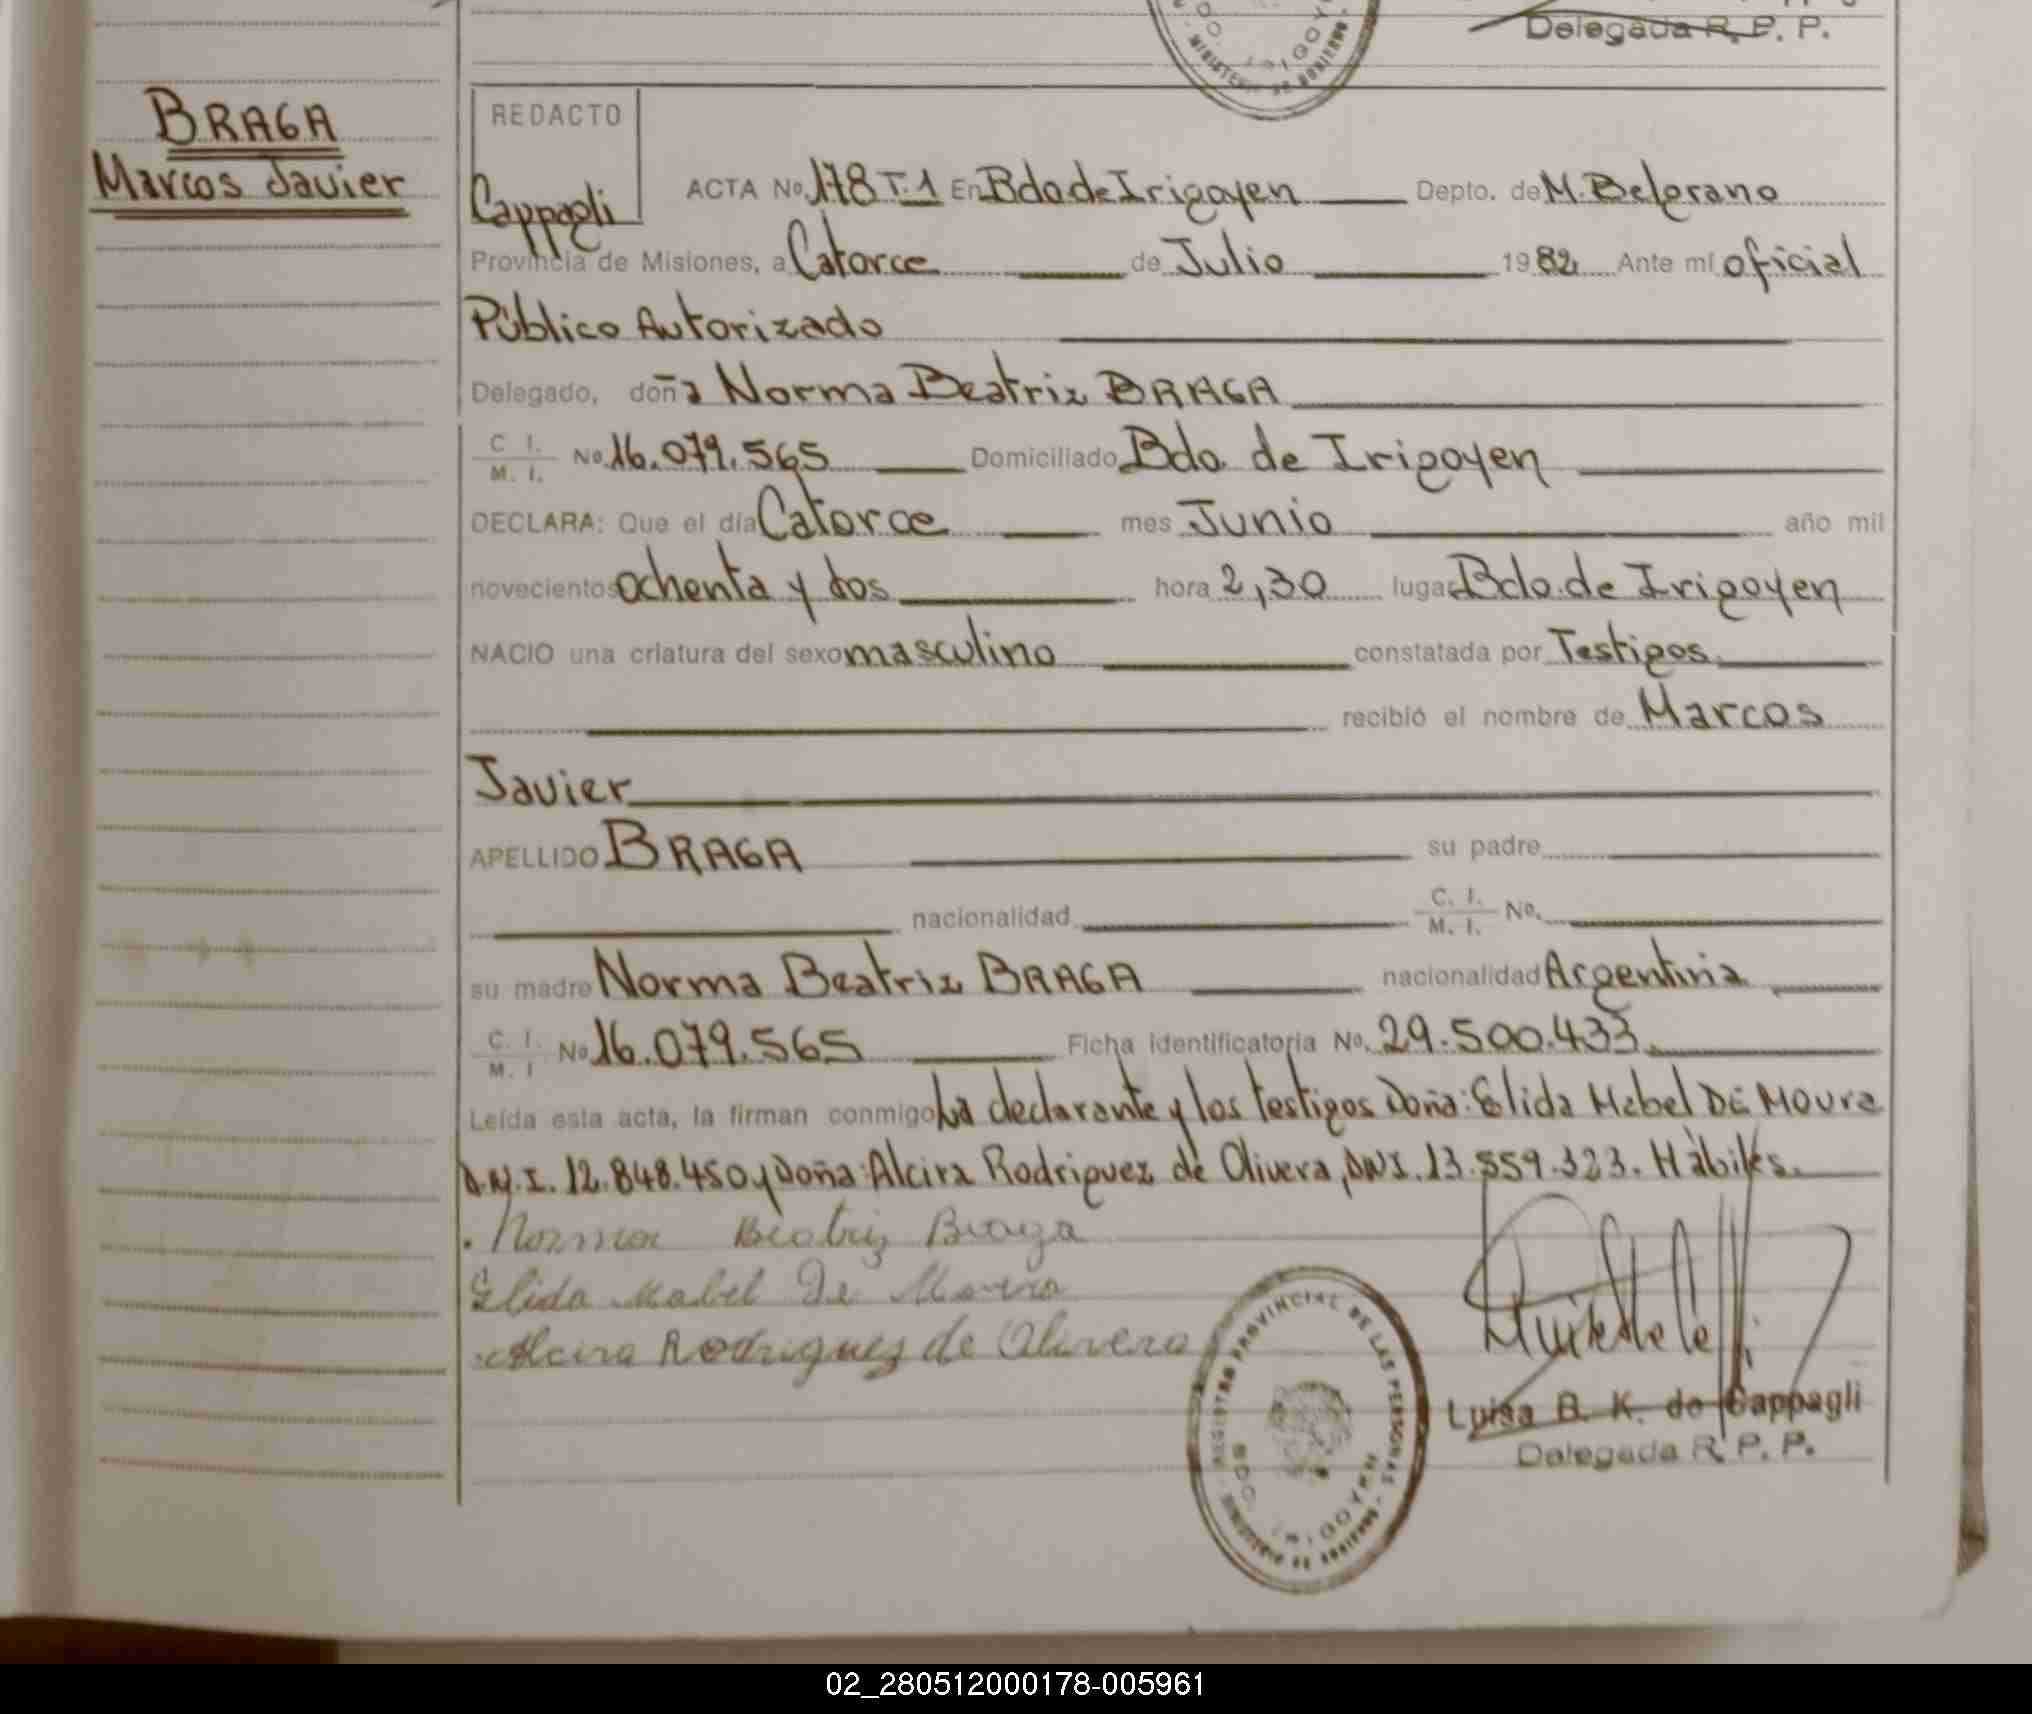 Delegada R. P. P.
MINISTERIO DE GOBIERNO
BRAGA
Marcos Javier
REDACTO
Cappagli
ACTA No. 178 T.1 En Bdo de Irigoyen Depto. de M. Belgrano
Provincia de Misiones, a Catorce de Julio 1982 Ante mí oficial
Público Autorizado
Delegado, doña Norma Beatriz BRAGA
C. I. / M. I. No. 16.079.565 Domiciliado Bdo. de Irigoyen
DECLARA: Que el día Catorce mes Junio año mil
novecientos ochenta y dos hora 2,30 lugar Bdo. de Irigoyen
NACIO una criatura del sexo masculino constatada por Testigos
recibió el nombre de Marcos
Javier
APELLIDO BRAGA su padre
nacionalidad C. I. / M. I. No.
su madre Norma Beatriz BRAGA nacionalidad Argentina
C. I. / M. I No 16.079.565 Ficha identificatoria No. 29.500.433
Leída esta acta, la firman conmigo La declarante y los testigos Doña: Elida Mabel DE MOURA
D.N.I. 12.848.450 y Doña: Alcira Rodriguez de Olivera, DNI. 13.559.323. Hábiles.
Norma Beatriz Braga
Elida Mabel De Moura
Alcira Rodriguez de Olivera
REGISTRO PROVINCIAL DE LAS PERSONAS - MINISTERIO DE GOBIERNO
BDO. IRIGOYEN
Luisa B. K. de Cappagli
Delegada R. P. P.
02_280512000178-005961